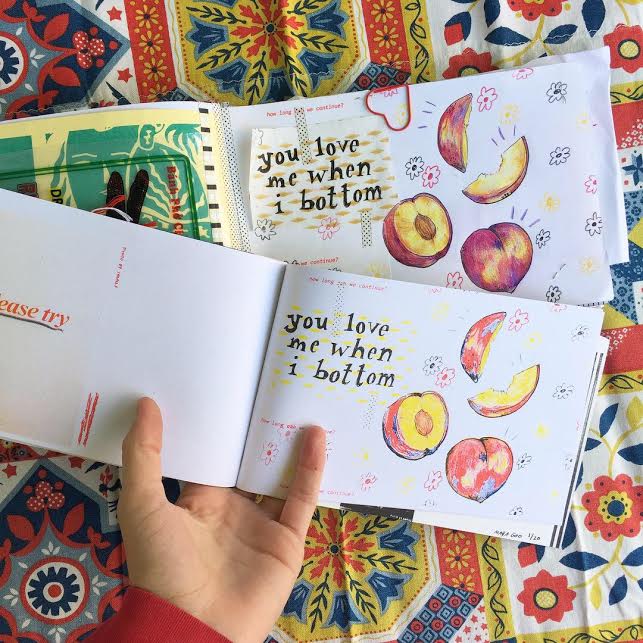 how long can we continue?
you love
me when
i bottom
we continue?
ease try
how long can we continue?
you love
me when
i bottom
how long can we continue?
we continue?
1/20